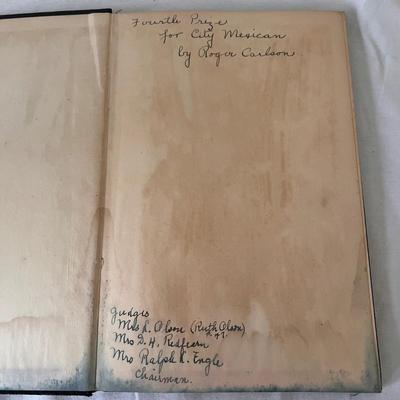 Fourth Prize
for City Mexican
by Roger Carlson.
Judges
Mrs L. Olson (Ruth Olson)
Mrs D. H. Redfearn
Mrs Ralph R. Engle
Chairman.